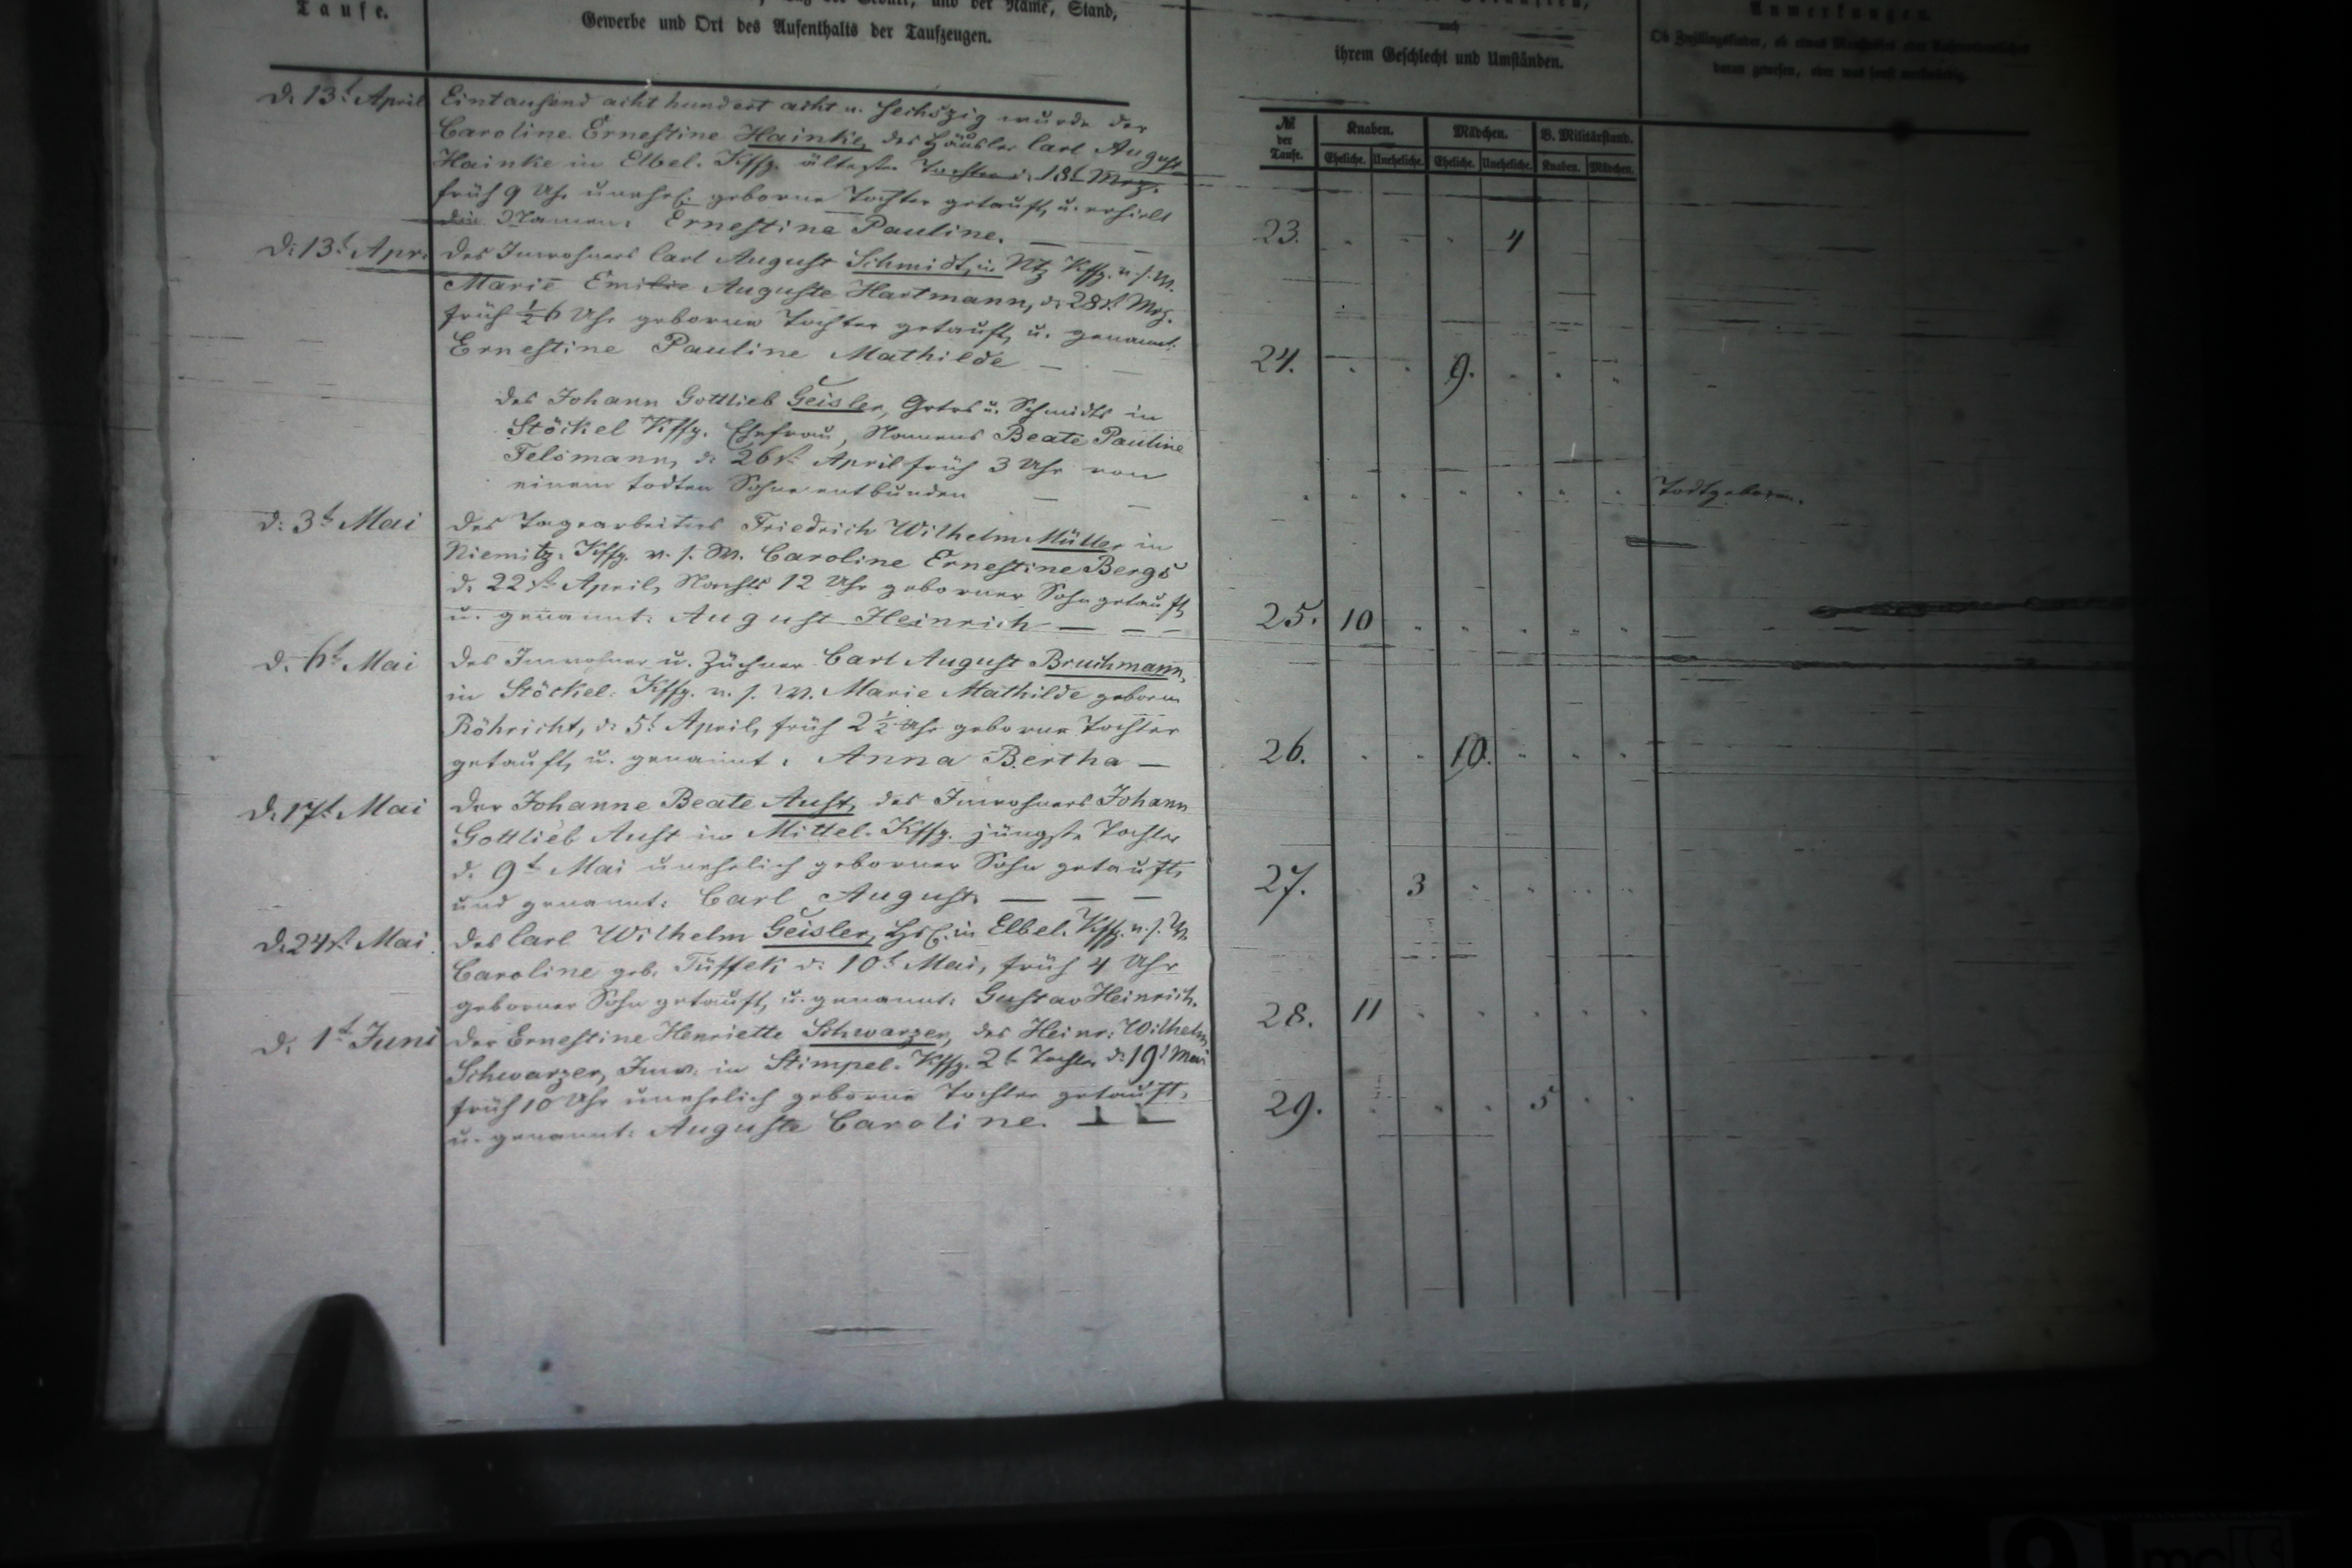 Taufe.
Gewerbe und Ort des Aufenthalts der Taufzeugen.
nach
ihrem Geschlecht und Umständen.
Anmerkungen.
№ der Taufe.
Knaben. Mädchen. B. Militärstand.
Eheliche. Uneheliche. Eheliche. Uneheliche. Knaben. Mädchen.
d. 13t April Eintausend acht hundert acht u. sechszig wurde der
Caroline Ernestine Hainke, des Häusler Carl August
Hainke in Elbel. Kffg. älteste Tochter d. 18t Mrz.
früh 9 Uhr unehel. geborne Tochter getauft, u. erhielt
die Namen: Ernestine Pauline. 23. 4
d. 13t Apr. des Inwohners Carl August Schmidt, in Ntz Kffg. u. s. W.
Marie Emilie Auguste Hartmann, d. 28st Mrz.
früh ½6 Uhr geborne Tochter getauft, u. genannt:
Ernestine Pauline Mathilde 24. 9.
des Johann Gottlieb Geisler, Grtrs u. Schmidts in
Stöckel Kffg. Ehefrau, Namens Beate Pauline
Felsmann, d. 26st April früh 3 Uhr von
einem todten Sohne entbunden Todtgeboren.
d. 3t Mai des Tagearbeiters Friedrich Wilhelm Müller in
Niemitz. Kffg. v. s. W. Caroline Ernestine Bergs
d. 22st April, Nachts 12 Uhr geborner Sohn getauft,
u. genannt: August Heinrich 25. 10
d. 6t Mai des Inwohner u. Züchner Carl August Bruchmann,
in Stöckel. Kffg. v. s. W. Marie Mathilde geborn
Röhricht, d. 5t April, früh 2½ Uhr geborne Tochter
getauft, u. genannt: Anna Bertha 26. 10.
d. 17t Mai der Johanne Beate Aust, des Inwohners Johann
Gottlieb Aust in Mittel. Kffg. jüngste Tochter
d. 9t Mai unehelich geborner Sohn getauft,
und genannt: Carl August. 27. 3
d. 24st Mai des Carl Wilhelm Geisler, Hsl. in Elbel. Kffg. u. s. W.
Caroline geb. Tüffek d. 10t Mai, früh 4 Uhr
geborner Sohn getauft, u. genannt: Gustav Heinrich. 28. 11
d. 1t Juni der Ernestine Henriette Schwarzer, des Heinr: Wilhelm
Schwarzer, Inw. in Stimpel. Kffg. 2t Tochter d. 19t Mai
früh 10 Uhr unehelich geborne Tochter getauft,
u. genannt: Auguste Caroline. 29. 5